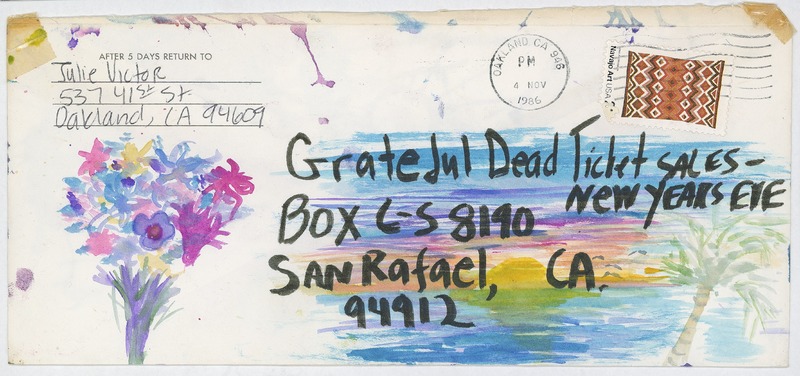 AFTER 5 DAYS RETURN TO
Julie Victor
537 41st St
Oakland, CA 94609
OAKLAND CA 946
PM
4 NOV
1986
Navajo Art USA
Grateful Dead Ticket SALES-
NEW YEARS EVE
BOX C-S 8190
SAN Rafael, CA.
94912